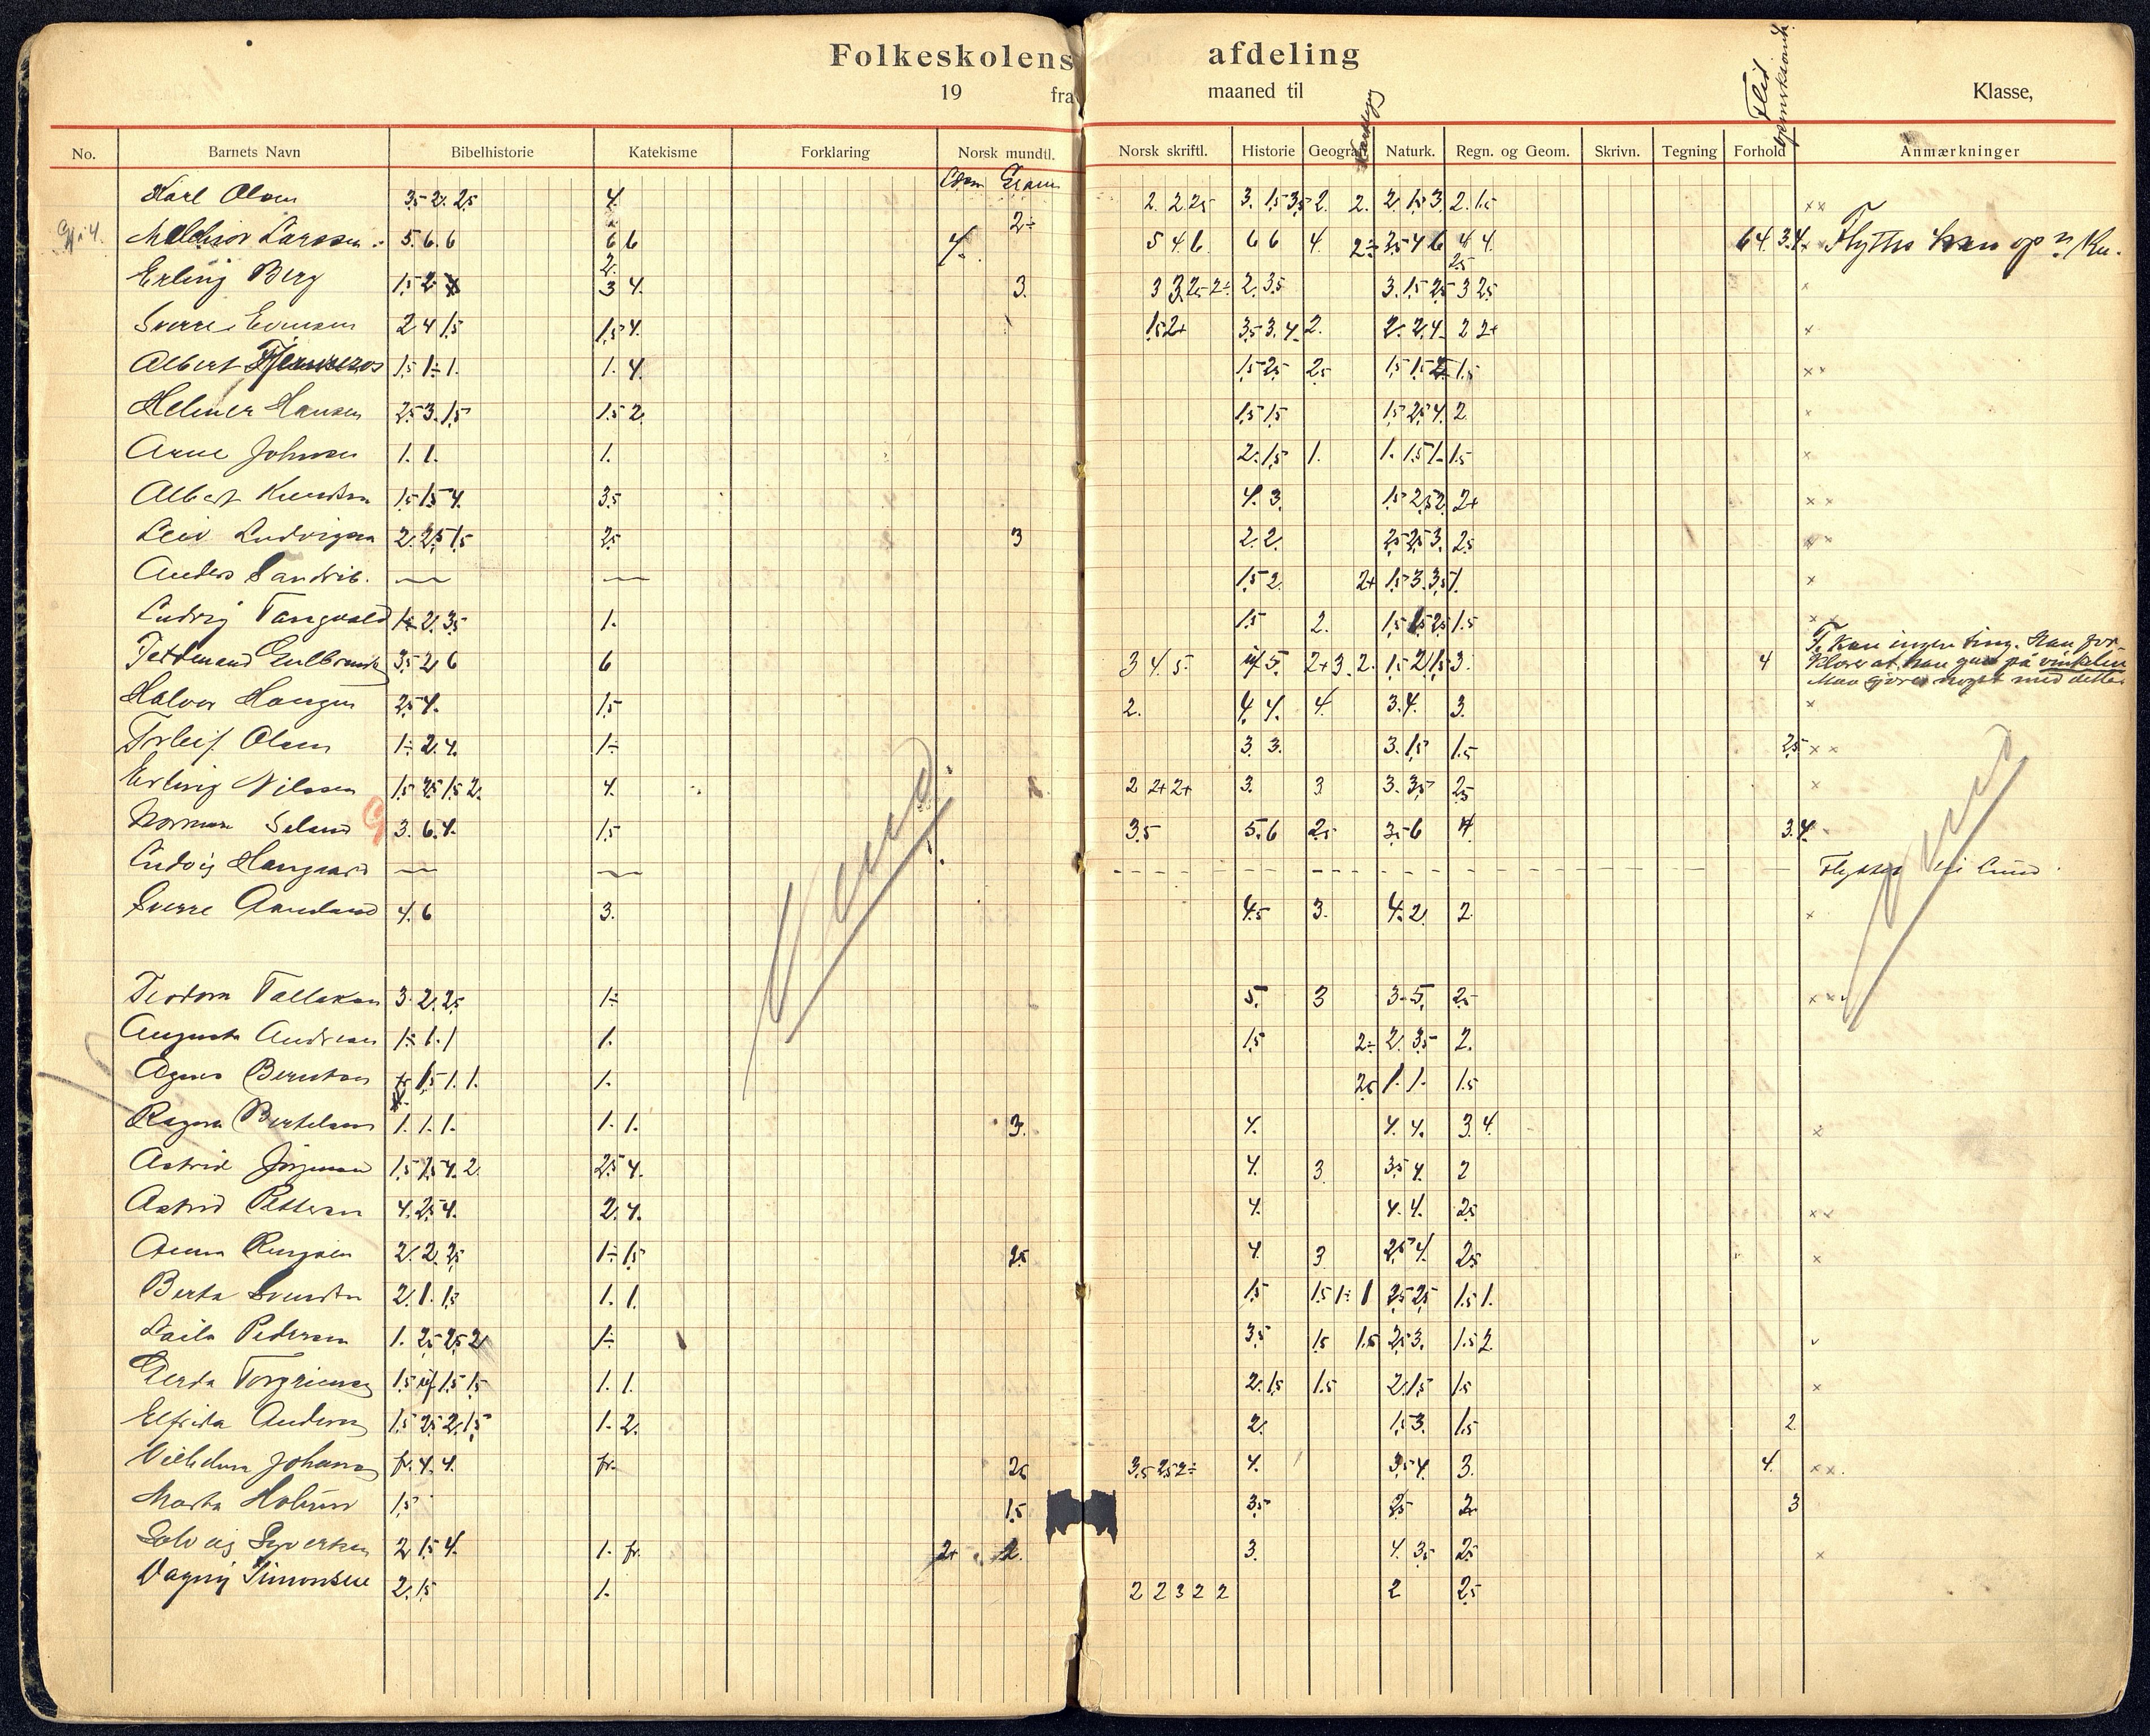 Folkeskolens afdeling
19 fra maaned til Klasse,
Flid
No. Barnets Navn Bibelhistorie Katekisme Forklaring Norsk mundtl. Norsk skriftl. Historie Geografi Naturk. Regn. og Geom. Skrivn. Tegning Forhold Anmærkninger
Gram
Karl Olsen 4. 2. 2. ××
Melchior Larssen 5. 6. 6 6 6 4. 2÷ 5 4 6. 6 6 4. 2÷ 4 4. 6 4. 3.4. Flyttes
Erling Berg 3 4. 3. ×
Sverre Evensen 2 4 1,5 1,5 4. 1,5 2+ 2. 2 2+ ×
Albert 1,5 1÷ 1. 1. 4. 1,5 2,5 2,5 1,5 ××
Helmer Hansen 2,5 3. 1,5 1,5 2. 1,5 1,5 1,5 2,5 4. 2 ×
Arne Johnsen 1. 1. 1. 2. 1,5 1. 1. 1,5 1. 1,5 ×
Albert Knudsen 1,5 1,5 4. 3,5 4. 3. 2+ ××
Leiv Ludvigsen 2. 2,5 1,5 2,5 3 2. 2. 2,5 2,5 3. 2,5 ××
Anders Sandvik. — — 1,5 2. 2+ 1,5 3. 3,5 1. ×
Ludvig Tangvald 1÷ 2. 3,5 1. 1,5 2. 1,5 1,5 2,5 1.5 ×
Ferdinand Gulbrands 3,5 2. 6 6 3 4. 5. 2+ 3. 2. 3. 4 F. kan ingen ting. Han for-
klarer at han går på vinkelen
Maa gjøres noget med dette.
Halvor Haugen 2,5 4. 1,5 2. 4. 4. 4. 3.4. 3. ×
Torleif Olsen 1÷ 2. 4. 1÷ 3. 3. 3. 1,5 1.5 2,5 ××
Erling Nilssen 1,5 2,5 1,5 2. 4. 2 2+ 2+ 3. 3 3. 3,5 2,5 ×
Norman Seland G 3. 6. 4. 1,5 3,5 5. 6 2,5 3. 6 4 3.4.
Ludvig Haugaard — — Flyttet til Lund.
Sverre Aaneland 4. 6 3. 4.5 3. 4. 2. 2. ×
Teodora Tallaksen 3. 2. 2,5 1÷ 5. 3 3. 5. 2,5 ××
Augusta Andresen 1÷ 1. 1 1. 1,5 2÷ 2. 3,5 2.
Agnes Berntsen 1. 2,5 1. 1. 1.5
Ragna Bertelsen 1. 1. 1. 1. 1. 3. 4. 4. 4. 3. 4. ×
Astrid Jörgensen 1,5 1,5 4. 2. 2,5 4. 4. 3 3,5 4. 2
Astrid Pettersen 4. 2,5 4. 2. 4. 4. 4. 4. 2,5 ××
Anna 2. 2. 2,5 1÷ 1,5 2,5 4. 3 2,5 4. 2,5 ×
Berta Svendsen 2. 1. 1,5 1. 1. 1,5 1.5 1÷ 1 2,5 2,5 1.5 1.
Laila Pedersen 1. 2,5 2,5 2. 1÷ 3,5 1,5 1.5 2,5 3. 1.5 2.
Gerda Torgriemsen 1. 1. 2. 1,5 1.5 2. 1,5 1,5 ×
Elfrida Andersen 1,5 2,5 2. 1,5 1. 2. 2. 1,5 3. 1.5 2
Vilhelma Johansen fr. 4. 4. fr. 2,5 3,5 2,5 2÷ 4. 3,5 4. 3. 4. ××.
Marta Holum 1,5 1,5 3,5 2,5 2+ 3
Solveig Syvertsen 2 1,5 4. 1. fr. 2+ 2. 3. 4. 3,5 2,5 ×
Dagny Simonsen 2. 1,5 1. 2 2 3 2 2 2 2,5